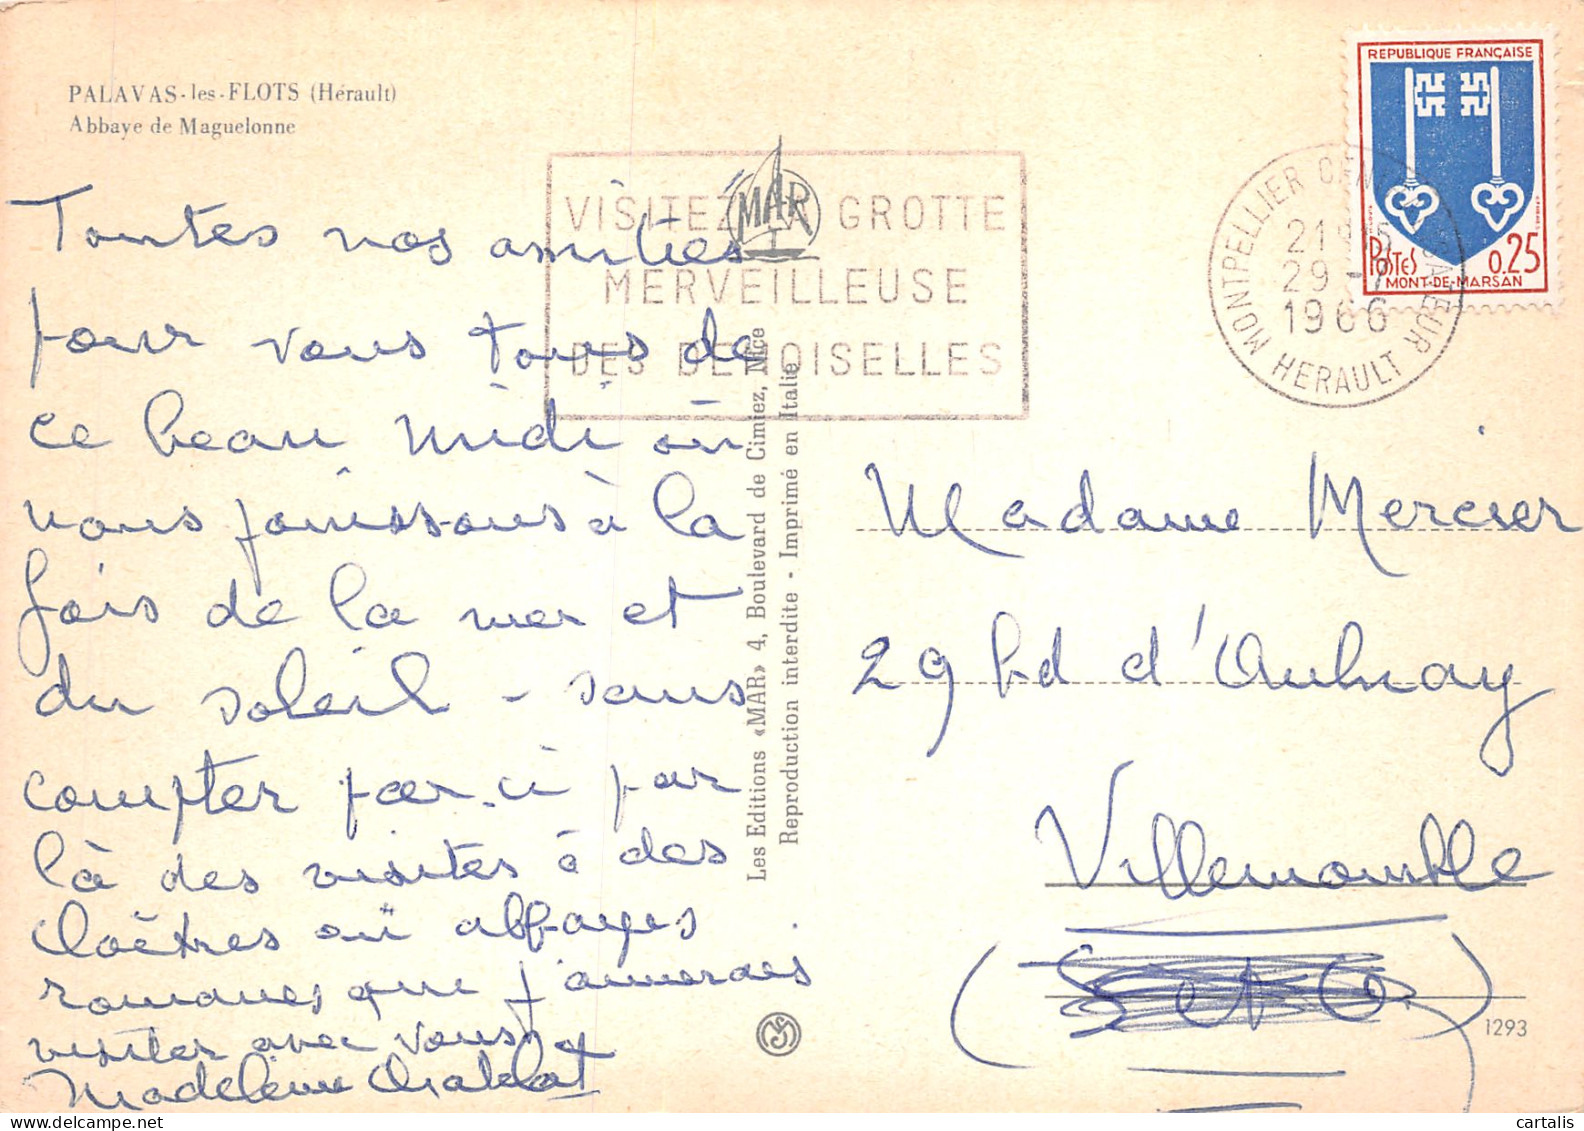 PALAVAS-les-FLOTS (Hérault)
Abbaye de Maguelonne
Toutes nos amitiés
pour vous tous de
ce beau midi où
nous jouissons à la
fois de la mer et
du soleil - sans
compter par-ci par
là des visites à des
cloîtres ou abbayes
romanes que j'aimerais
visiter avec vous
Madeleine
VISITEZ LA GROTTE
MERVEILLEUSE
DES DEMOISELLES
MAR
Les Editions «MAR» 4, Boulevard de Cimiez, Nice
Reproduction interdite - Imprimé en Italie
MONTPELLIER HERAULT
29-7
1966
REPUBLIQUE FRANÇAISE
POSTES 0.25
MONT-DE-MARSAN
Madame Mercier
29 bd d'Aulnay
Villemomble
1293
cartalis